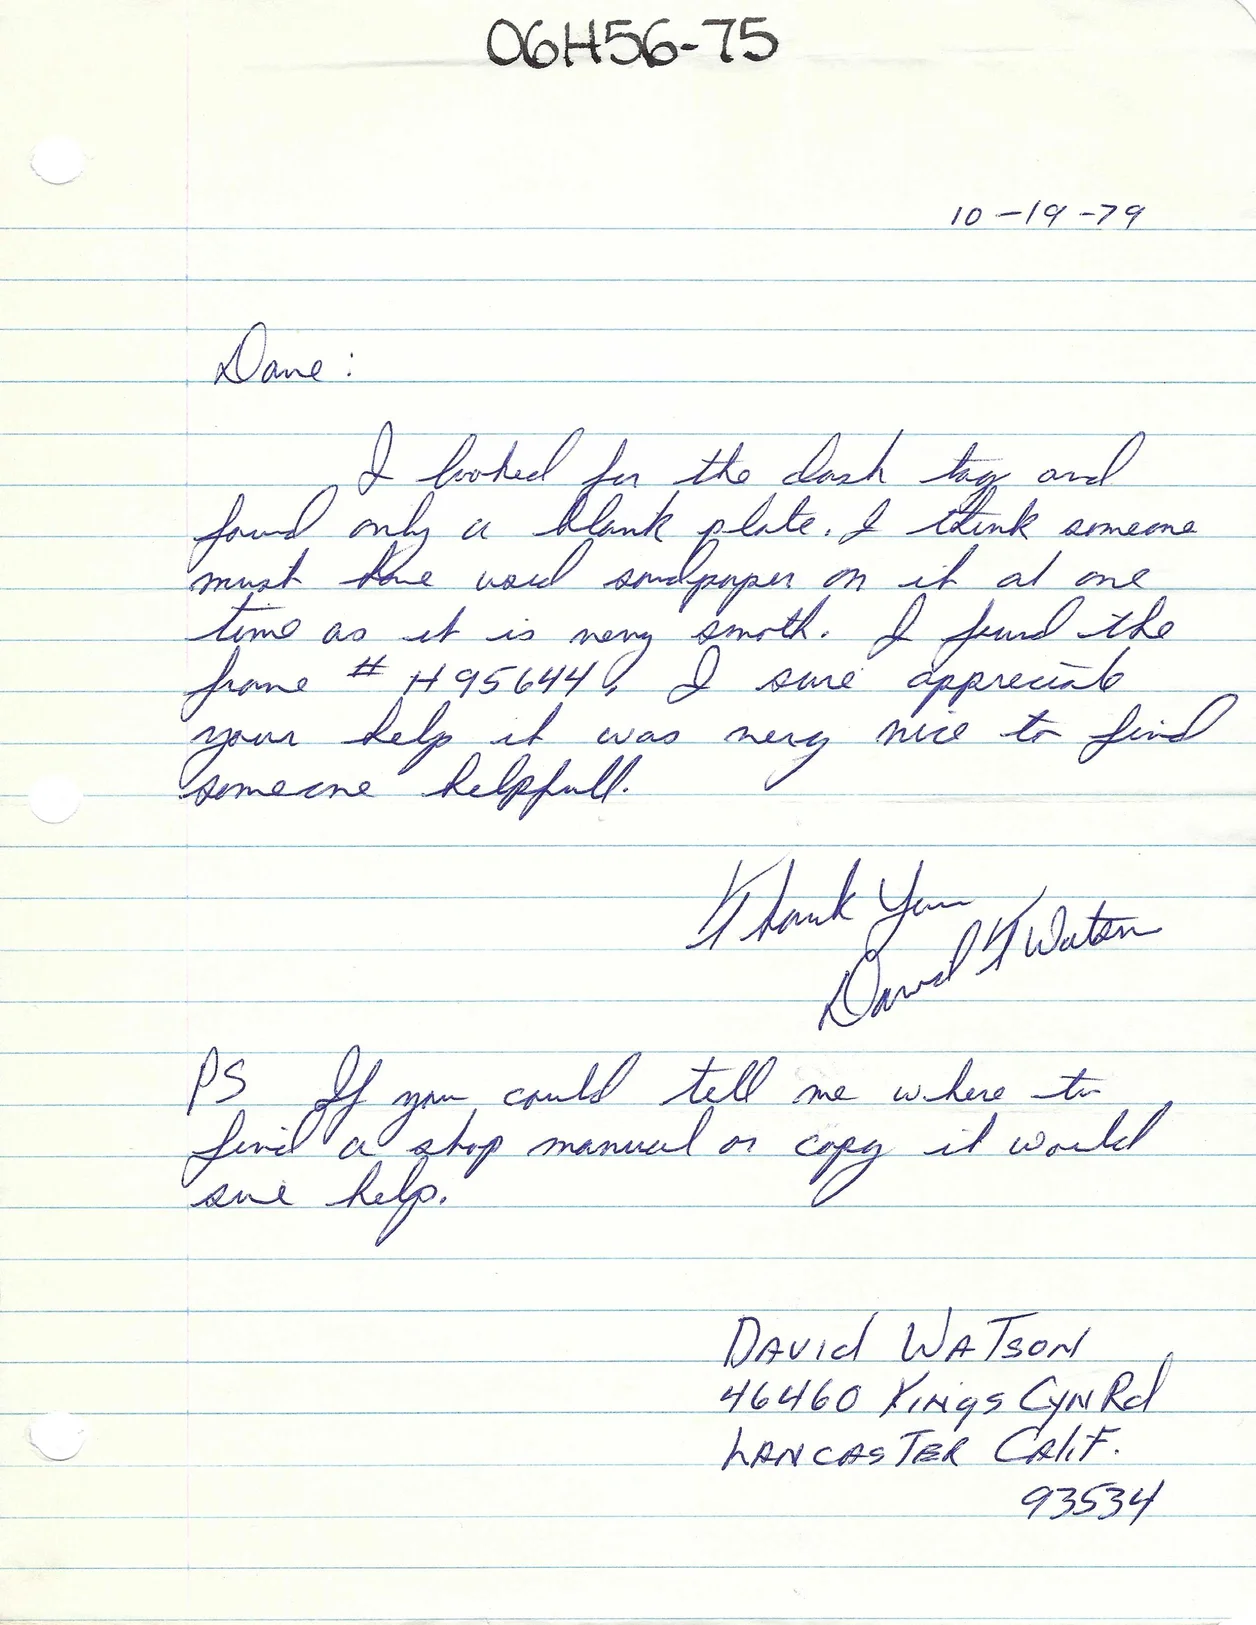 06H56-75
10-19-79
Dave:
I looked for the dash tag and
found only a blank plate. I think someone
must have used sandpaper on it at one
time as it is very smoth. I found the
frame # H95644, I sure appreciate
your help it was very nice to find
someone helpfull.
Thank You
David T Watson
PS If you could tell me where to
find a shop manual or copy it would
sure help.
DAVId WATSON
46460 KiNgs CyN Rd
LANCASTER CAliF.
93534